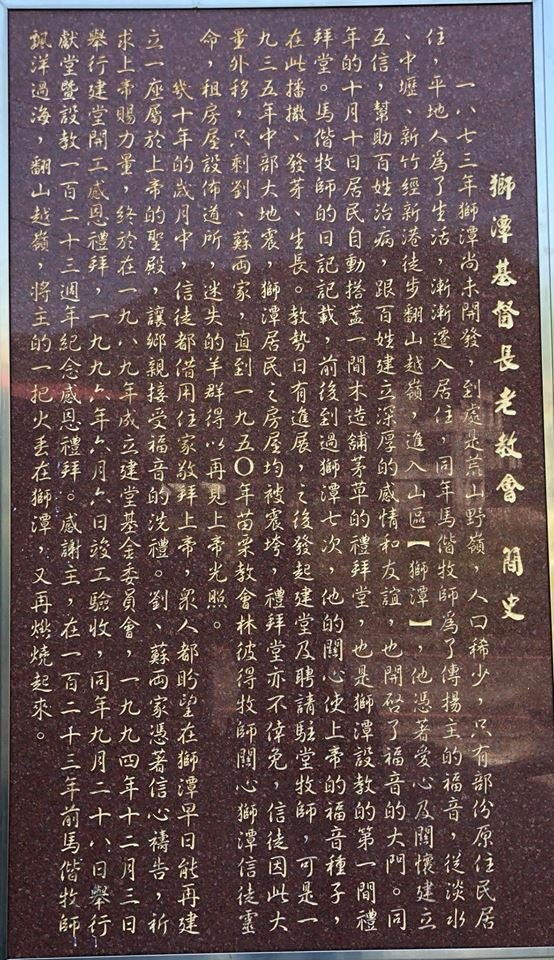 獅潭基督長老教會 簡史
一八七三年獅潭尚未開發，到處是荒山野嶺，人口稀少，只有部份原住民居
住，平地人為了生活，漸漸遷入居住，同年馬偕牧師為了傳揚主的福音，從淡水
、中壢、新竹經新港徒步翻山越嶺，進入山區【獅潭】，他憑著愛心及關懷建立
互信，幫助百姓治病，跟百姓建立深厚的感情和友誼，也開啓了福音的大門。同
年的十月十日居民自動搭蓋一間木造舖茅草的禮拜堂，也是獅潭設教的第一間禮
拜堂。馬偕牧師的日記記載，前後到過獅潭七次，他的關心使上帝的福音種子，
在此播撒、發芽、生長。教勢日有進展，之後發起建堂及聘請駐堂牧師，可是一
九三五年中部大地震，獅潭居民之房屋均被震垮，禮拜堂亦不倖免，信徒因此大
量外移，只剩劉、蘇兩家，直到一九五〇年苗栗教會林彼得牧師關心獅潭信徒靈
命，租房屋設佈道所，迷失的羊群得以再見上帝光照。
幾十年的歲月中，信徒都借用住家敬拜上帝，眾人都盼望在獅潭早日能再建
立一座屬於上帝的聖殿，讓鄉親接受福音的洗禮。劉、蘇兩家憑著信心禱告，祈
求上帝賜力量，終於在一九八九年成立建堂基金委員會，一九九四年十二月三日
舉行建堂開工感恩禮拜，一九九六年六月六日竣工驗收，同年九月二十八日舉行
獻堂暨設教一百二十三週年紀念感恩禮拜。感謝主，在一百二十三年前馬偕牧師
飄洋過海，翻山越嶺，將主的一把火丟在獅潭，又再燃燒起來。